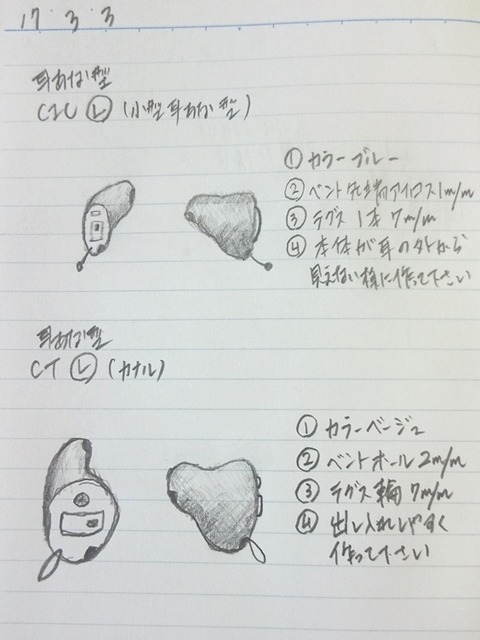 17・3・3
耳あな型
CIC Ⓛ (小型耳あな型)
① カラーブルー
② ベント先端アイロス1m/m
③ テグス1本7m/m
④ 本体が耳の外から
見えない様に作って下さい
耳あな型
CT Ⓛ (カナル)
① カラーベージュ
② ベントオール2m/m
③ テグス輪7m/m
④ 出し入れしやすく
作って下さい